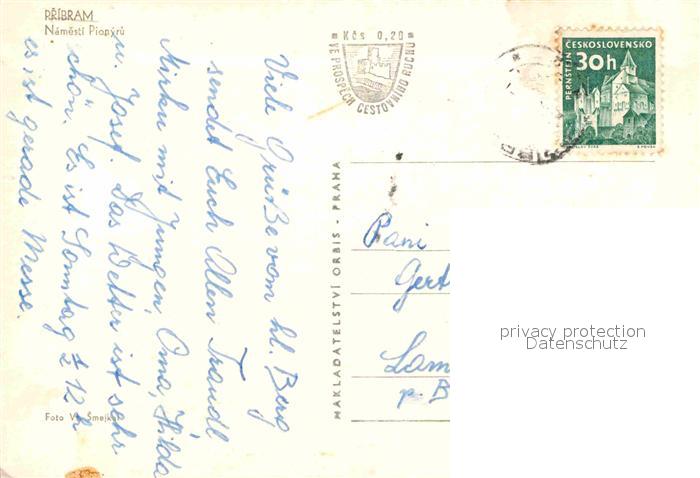 PŘÍBRAM
Náměstí Pionýrů
Viele Grüße vom hl. Berg
sendet Euch Allen Traudl
Mirku mit Jungen, Oma, Hilda
u. Josef. Das Wetter ist sehr
schön. Es ist Sonntag ½ 12 h
es ist gerade Messe.
Foto V. Šmejkal
NAKLADATELSTVÍ ORBIS - PRAHA
Kčs 0,20
VE PROSPĚCH CESTOVNÍHO RUCHU
ČESKOSLOVENSKO
30h
PERNŠTEJN
Paní
Gert
Lam
p. B
privacy protection
Datenschutz